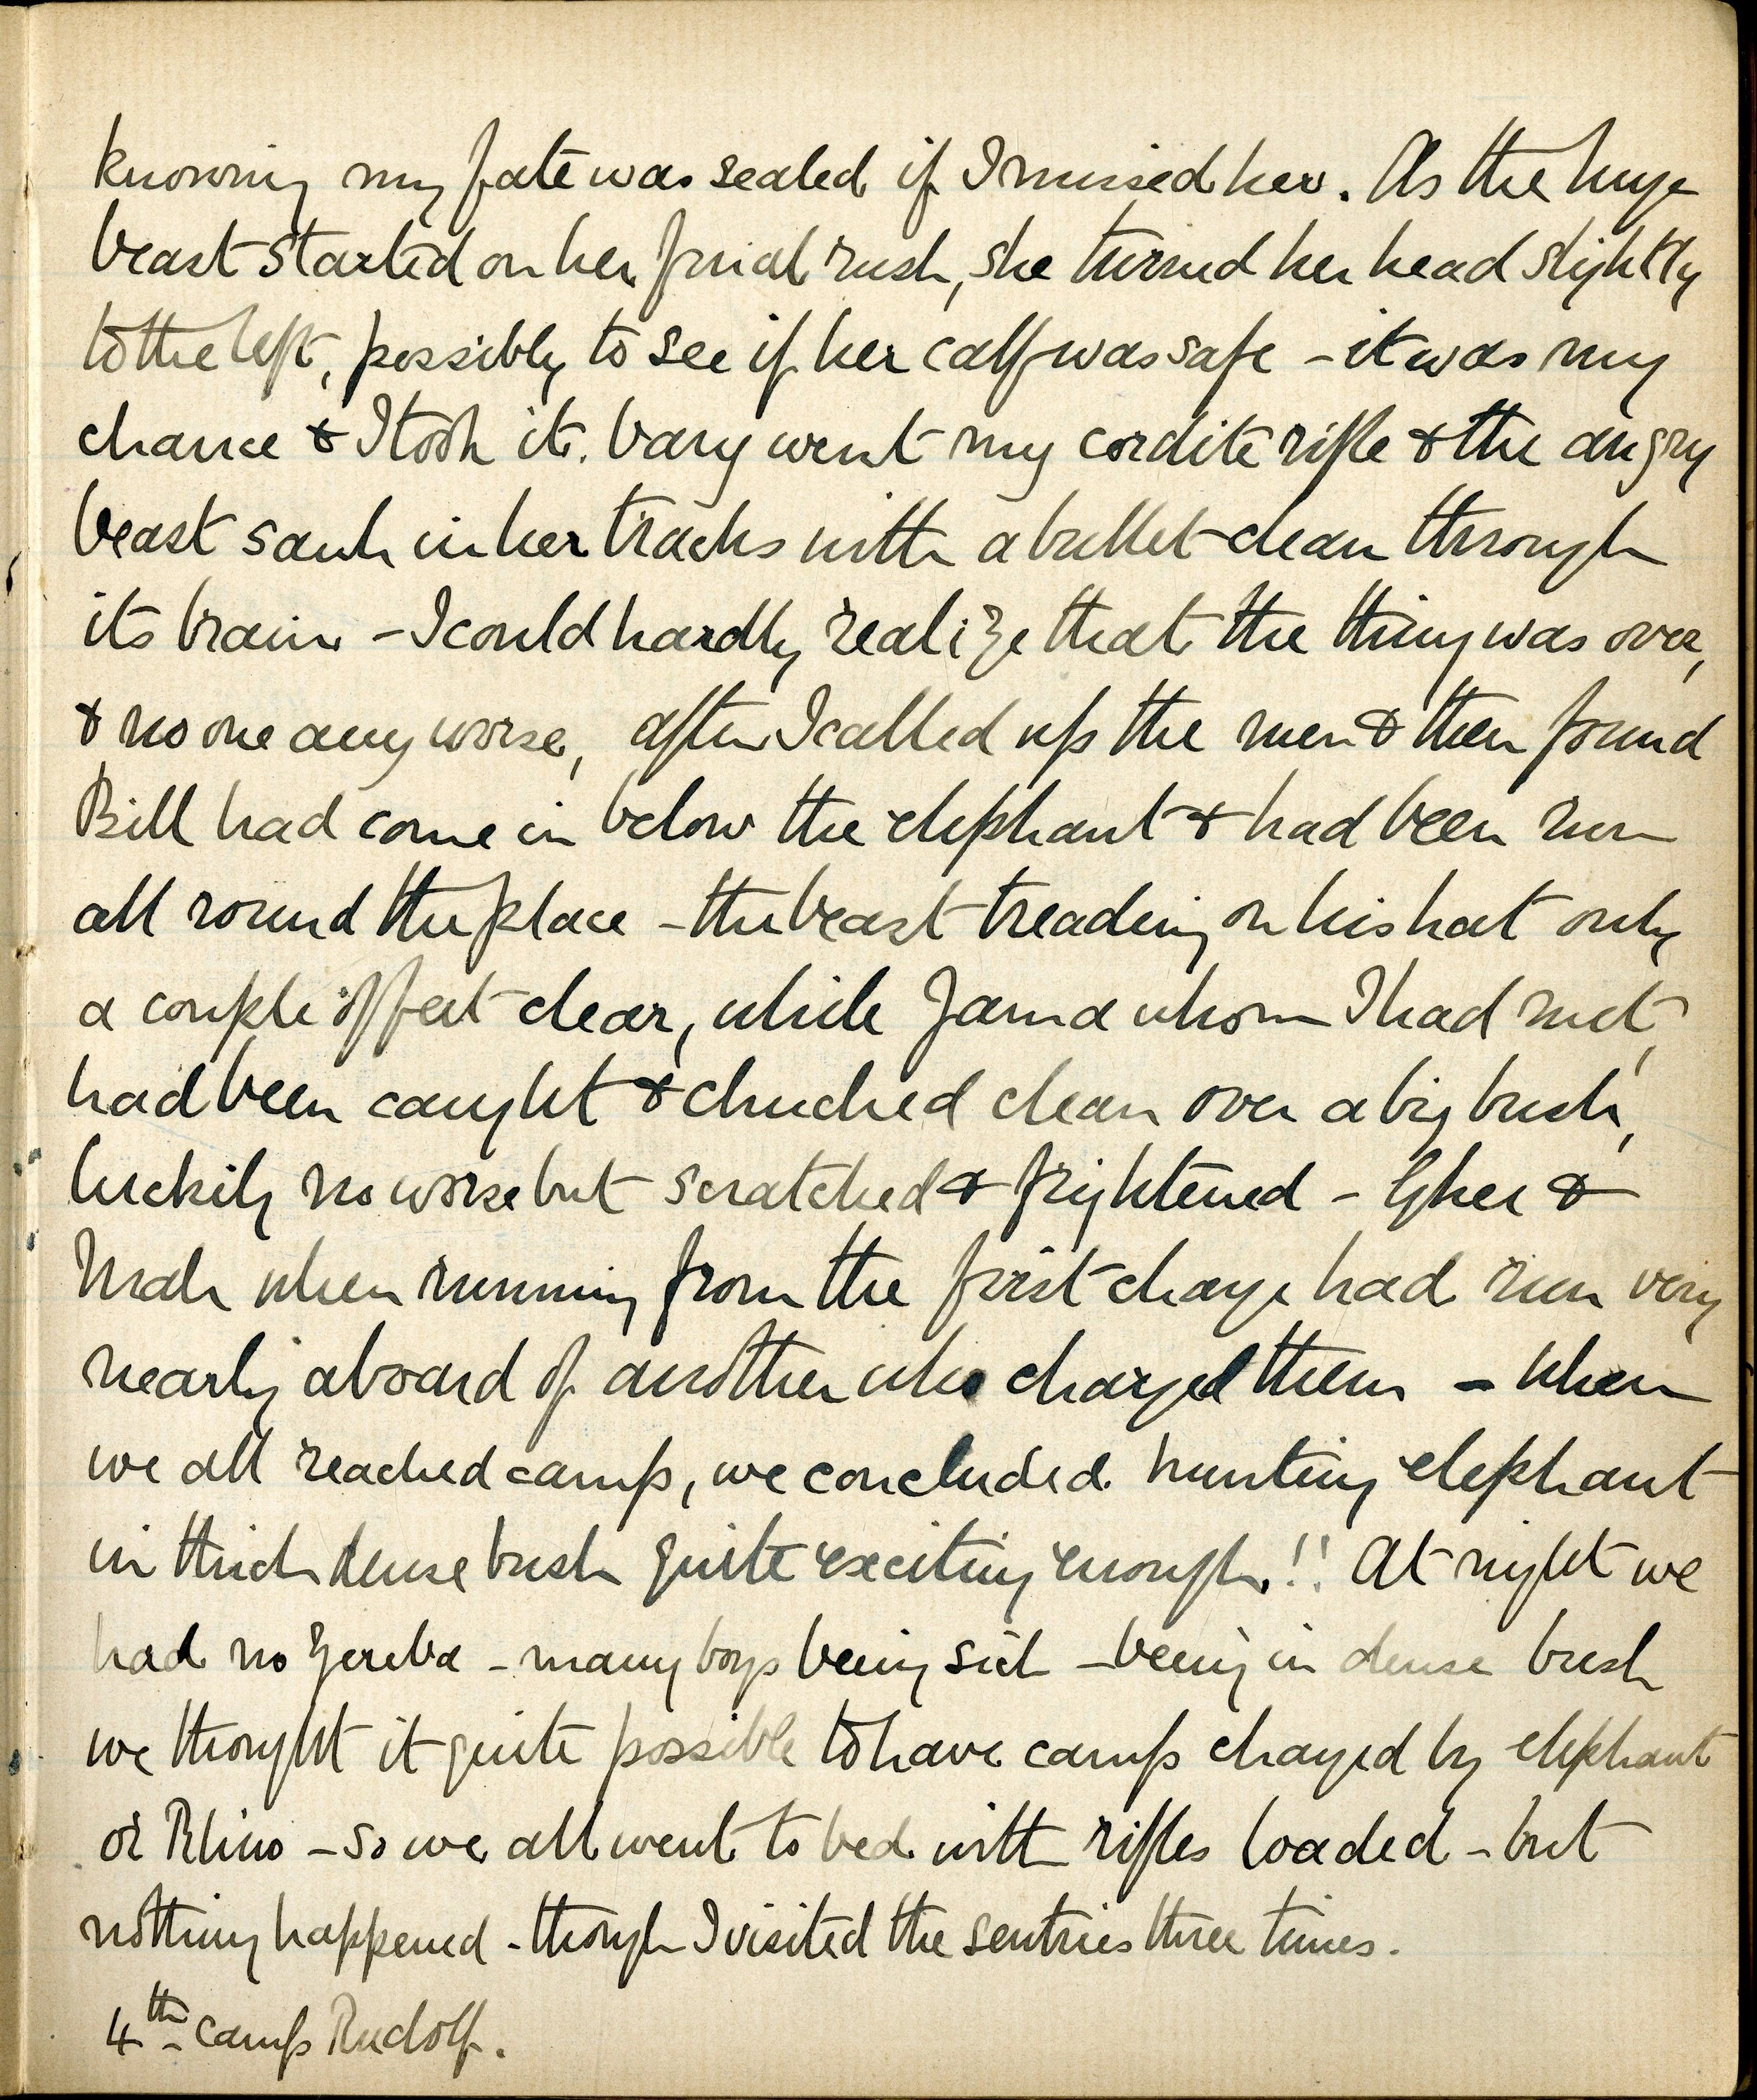 knowing my fate was sealed if I missed her. As the huge
beast started on her final rush, she turned her head slightly
to the left, possibly to see if her calf was safe - it was my
chance & I took it. bang went my cordite rifle & the angry
beast sank in her tracks with a bullet clean through
its brain - I could hardly realize that the thing was over,
& no one any worse, after I called up the men & then found
Bill had come in below the elephant & had been run
all round the place - the beast treading on his hat only
a couple of feet clear, while Jama whom I had met,
had been caught & chucked clean over a big bush,
luckily no worse but scratched & frightened - &
when running from the first charge had run very
nearly aboard of another who charged them - When
we all reached camp, we concluded hunting elephant
in thick dense bush quite exciting enough!! At night we
had no Zereba - many boys being sick - being in dense bush
we thought it quite possible to have camp charged by elephant
or Rhino - so we all went to bed with rifles loaded - but
nothing happened - though I visited the sentries three times.
4th camp Rudolf.